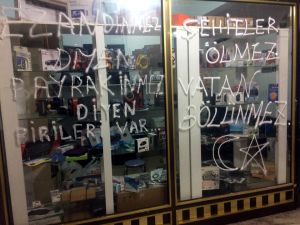 EZAN DİNMEZ
DİYEN
BAYRAK İNMEZ
DİYEN
BİRİLERİ VAR...
ŞEHİTLER
ÖLMEZ
VATAN
BÖLÜNMEZ